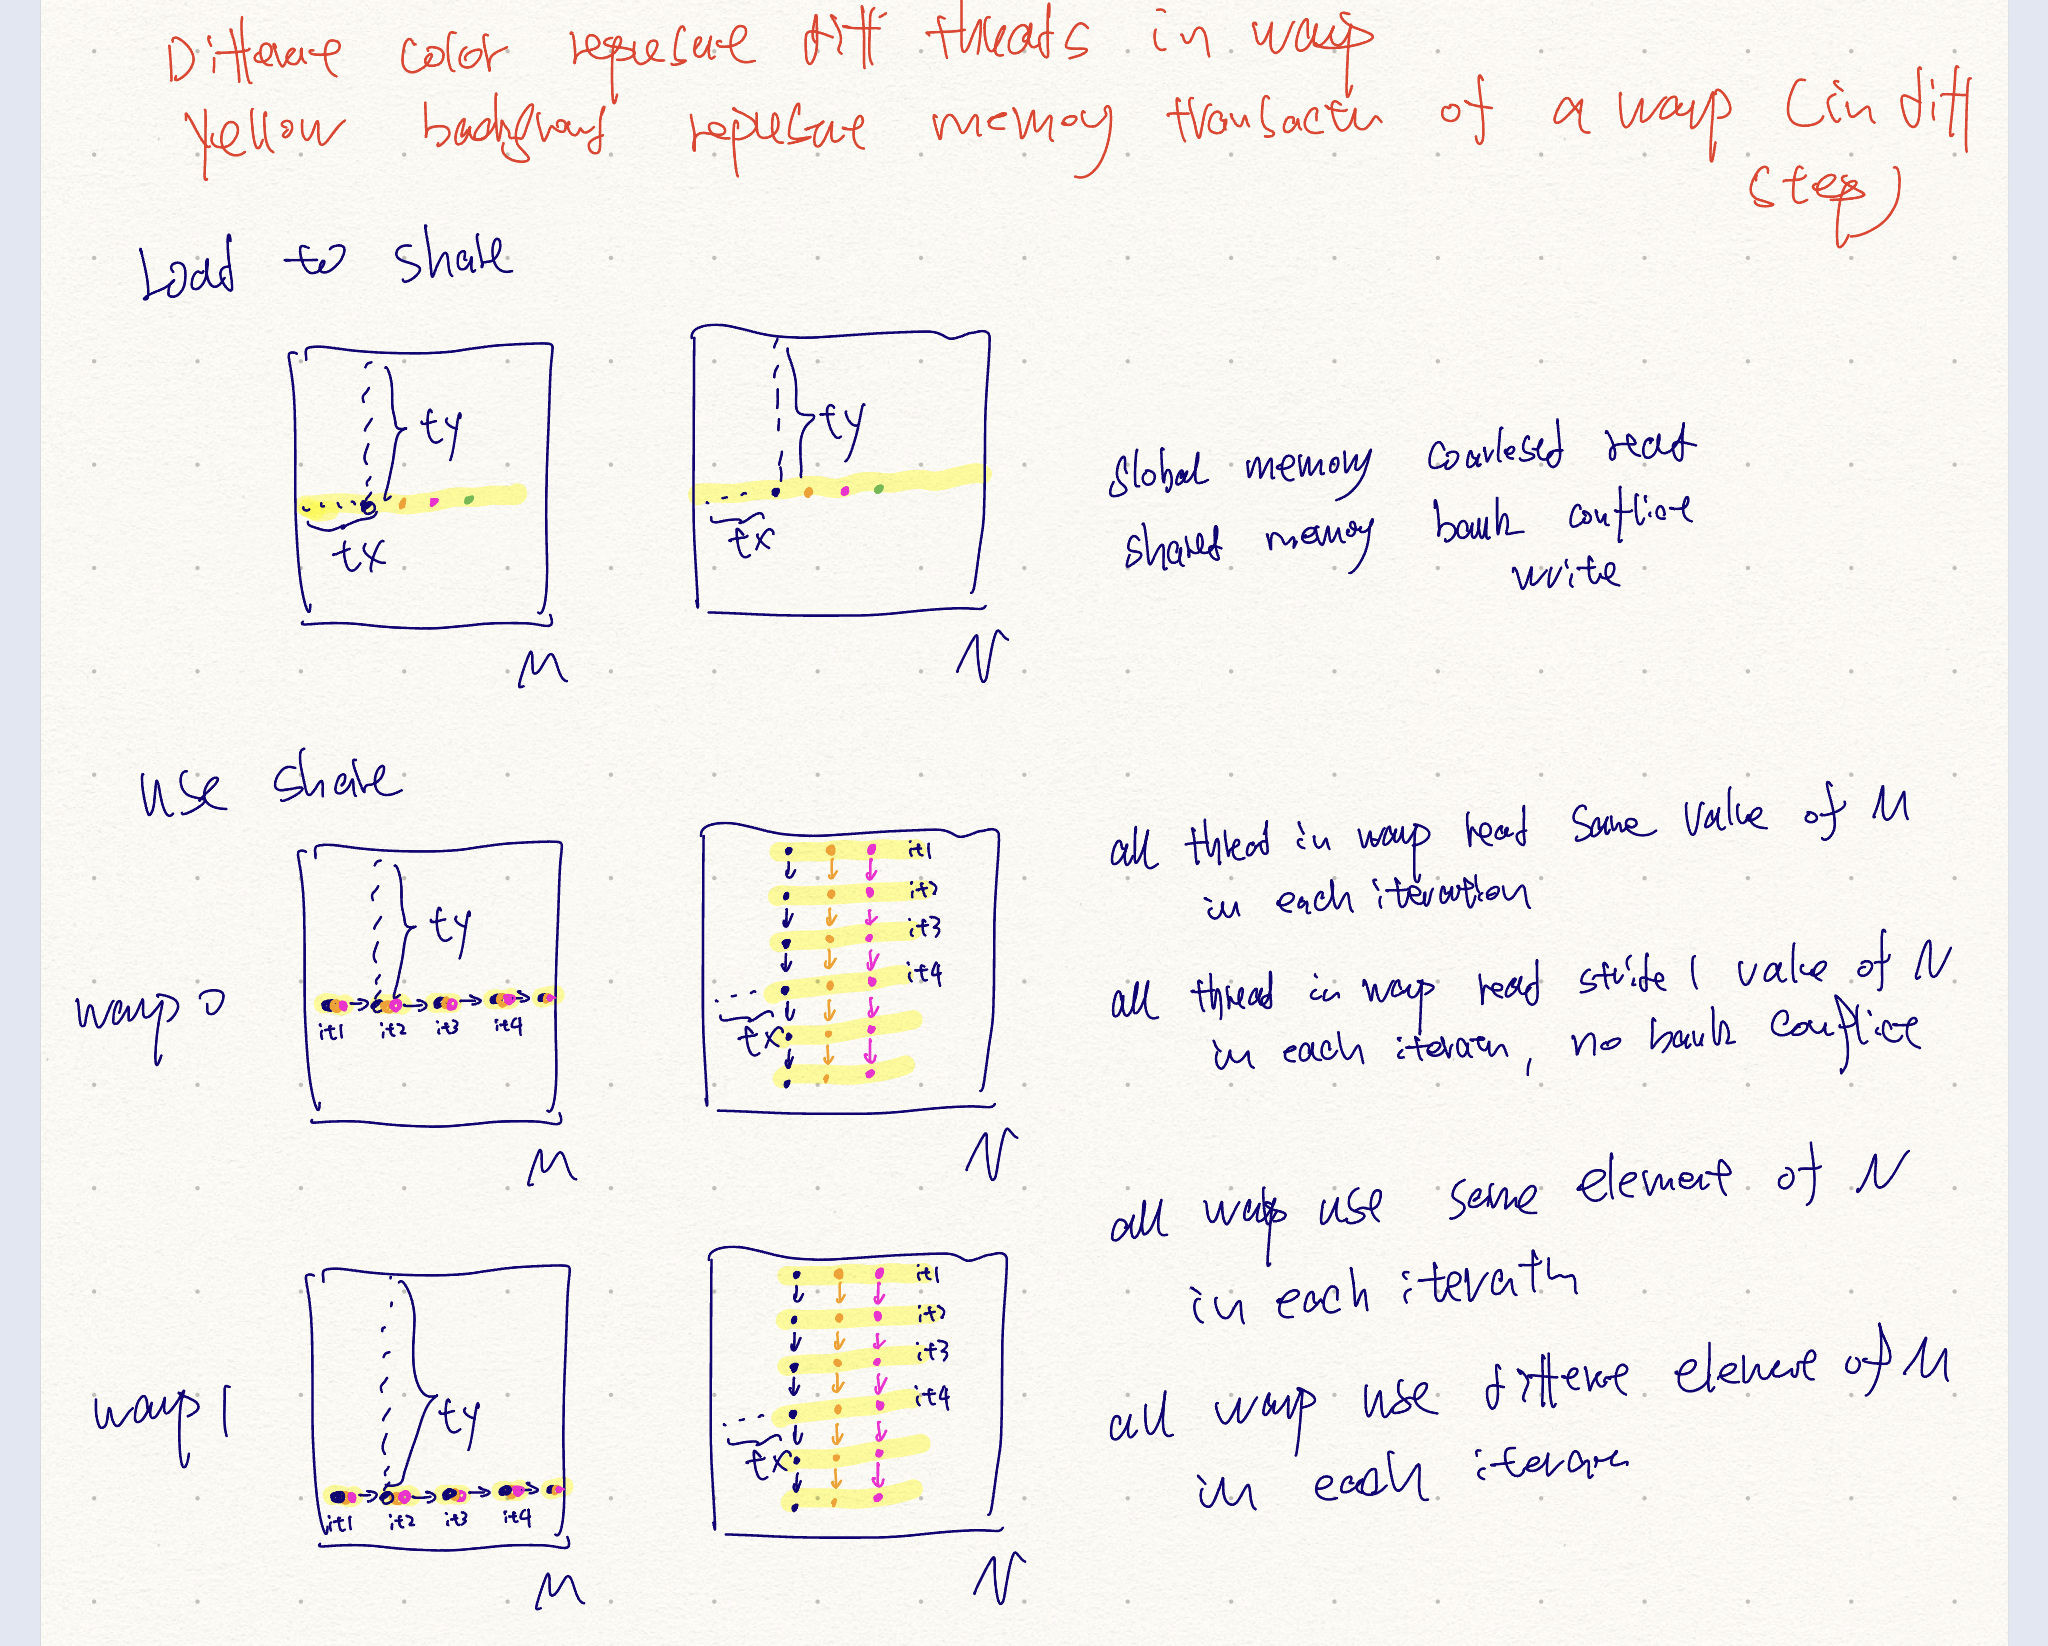 Different color represent diff threads in warp
Yellow background represent memory transactn of a warp (in diff
step)
Load to share
ty
ty
tx
tx
Global memory coarlesed read
shared memory bank conflict
write
M
N
use share
warp 0
ty
it1 it2 it3 it4
M
it1
it2
it3
it4
tx
N
all thread in warp read same value of M
in each iteration
all thread in warp read stride 1 value of N
in each iteratn, no bank conflict
warp 1
ty
it1 it2 it3 it4
M
it1
it2
it3
it4
tx
N
all warp use same element of N
in each iteratn
all warp use different element of M
in each iteratn